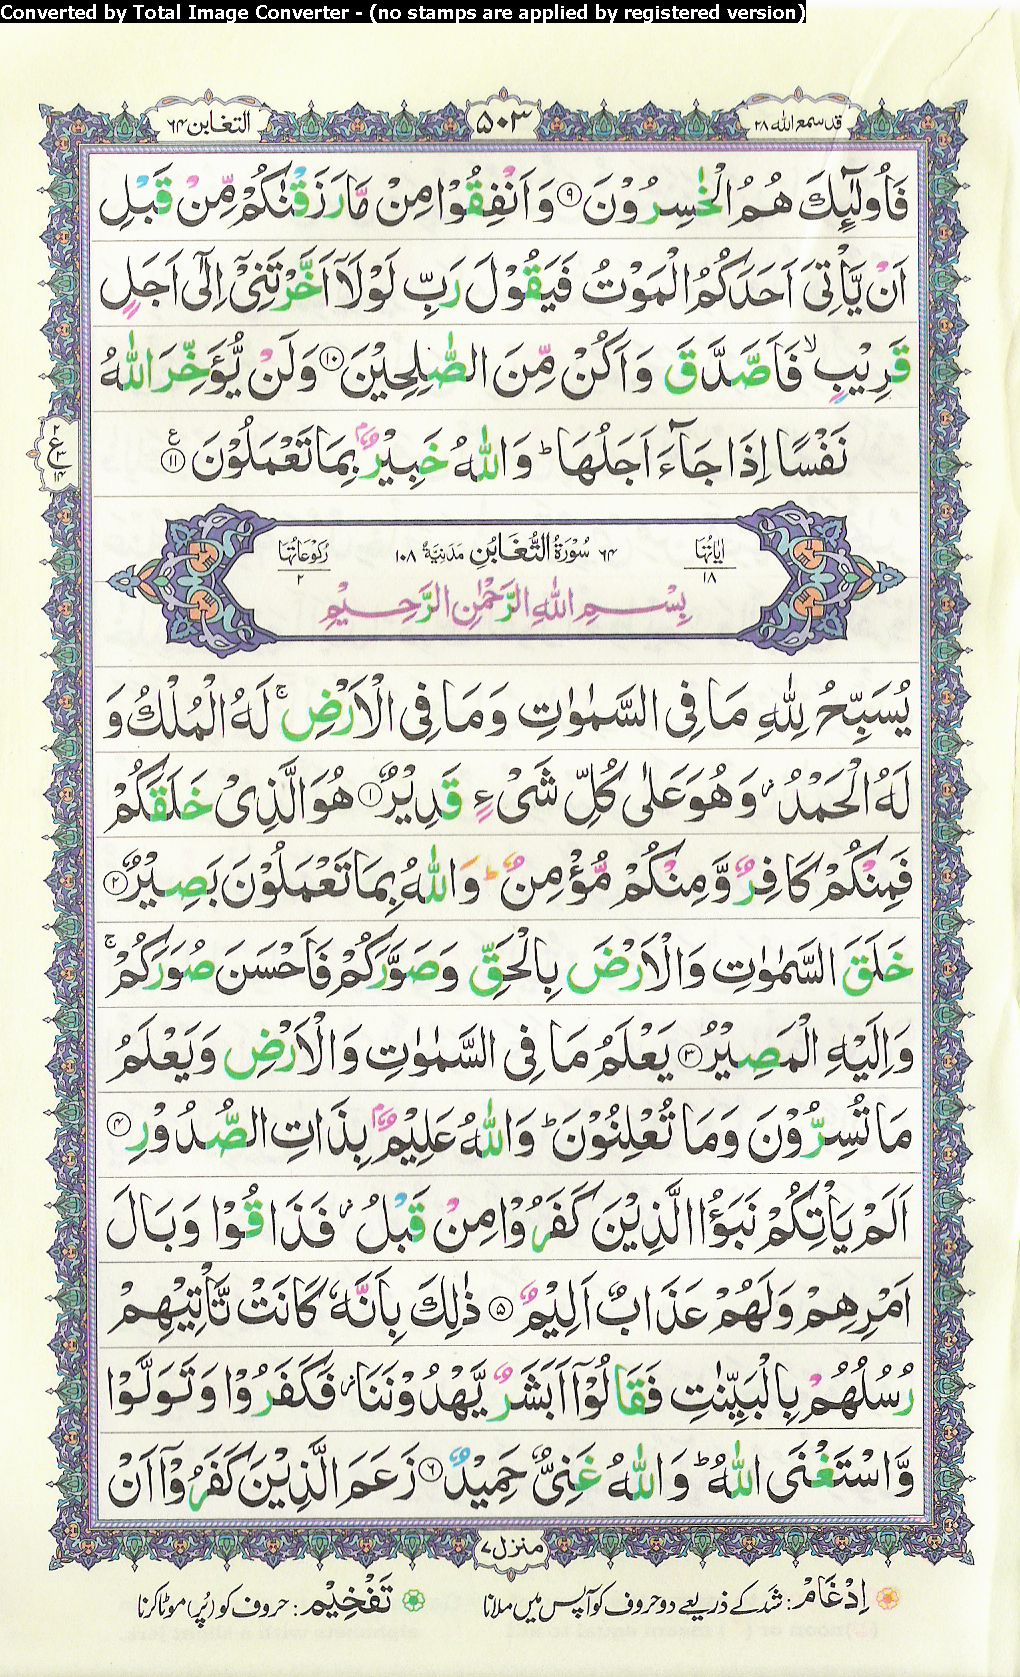 Converted by Total Image Converter - (no stamps are applied by registered version)
قد سمع الله ۲۸
۵۰۳
التغابن ۶۴
فَاُولٰٓئِكَ هُمُ الْخٰسِرُوْنَ ۹ وَ اَنْفِقُوْا مِنْ مَّا رَزَقْنٰكُمْ مِّنْ قَبْلِ
اَنْ يَّاْتِىَ اَحَدَكُمُ الْمَوْتُ فَيَقُوْلَ رَبِّ لَوْلَاۤ اَخَّرْتَنِىْۤ اِلٰۤى اَجَلٍ
قَرِيْبٍ ۙ فَاَصَّدَّقَ وَ اَكُنْ مِّنَ الصّٰلِحِيْنَ ۱۰ وَلَنْ يُّؤَخِّرَ اللّٰهُ
نَفْسًا اِذَا جَآءَ اَجَلُهَا ؕ وَ اللّٰهُ خَبِيْرٌۢ بِمَا تَعْمَلُوْنَ ۱۱
ع
۲
۱۴
اٰيَاتُهَا ۱۸
۶۴ سُوْرَةُ التَّغَابُنِ مَدَنِيَّةٌ ۱۰۸
رُكُوْعَاتُهَا ۲
بِسْمِ اللّٰهِ الرَّحْمٰنِ الرَّحِيْمِ
يُسَبِّحُ لِلّٰهِ مَا فِى السَّمٰوٰتِ وَمَا فِى الْاَرْضِ ۚ لَهُ الْمُلْكُ وَ
لَهُ الْحَمْدُ ؗ وَهُوَ عَلٰى كُلِّ شَىْءٍ قَدِيْرٌ ۱ هُوَ الَّذِىْ خَلَقَكُمْ
فَمِنْكُمْ كَافِرٌ وَّمِنْكُمْ مُّؤْمِنٌ ؕ وَاللّٰهُ بِمَا تَعْمَلُوْنَ بَصِيْرٌ ۲
خَلَقَ السَّمٰوٰتِ وَالْاَرْضَ بِالْحَقِّ وَصَوَّرَكُمْ فَاَحْسَنَ صُوَرَكُمْ ۚ
وَاِلَيْهِ الْمَصِيْرُ ۳ يَعْلَمُ مَا فِى السَّمٰوٰتِ وَالْاَرْضِ وَيَعْلَمُ
مَا تُسِرُّوْنَ وَمَا تُعْلِنُوْنَ ؕ وَاللّٰهُ عَلِيْمٌۢ بِذَاتِ الصُّدُوْرِ ۴
اَلَمْ يَاْتِكُمْ نَبَؤُا الَّذِيْنَ كَفَرُوْا مِنْ قَبْلُ ؗ فَذَاقُوْا وَبَالَ
اَمْرِهِمْ وَلَهُمْ عَذَابٌ اَلِيْمٌ ۵ ذٰلِكَ بِاَنَّهٗ كَانَتْ تَّاْتِيْهِمْ
رُسُلُهُمْ بِالْبَيِّنٰتِ فَقَالُوْۤا اَبَشَرٌ يَّهْدُوْنَنَا ؗ فَكَفَرُوْا وَتَوَلَّوْا
وَّاسْتَغْنَى اللّٰهُ ؕ وَ اللّٰهُ غَنِىٌّ حَمِيْدٌ ۶ زَعَمَ الَّذِيْنَ كَفَرُوْۤا اَنْ
منزل ۷
اِدْغَامْ: شد کے ذریعے دو حروف کو آپس میں ملانا
تَفْخِيْم: حروف کو (پُر) موٹا کرنا